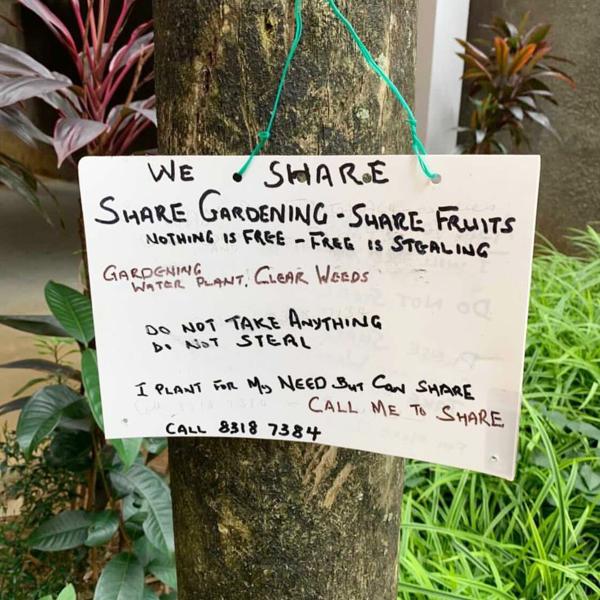 WE SHARE
SHARE GARDENING - SHARE FRUITS
NOTHING IS FREE - FREE IS STEALING
GARDENING
WATER PLANT, CLEAR WEEDS
DO NOT TAKE ANYTHING
DO NOT STEAL
I PLANT FOR MY NEED BUT CAN SHARE
CALL ME TO SHARE
CALL 8318 7384